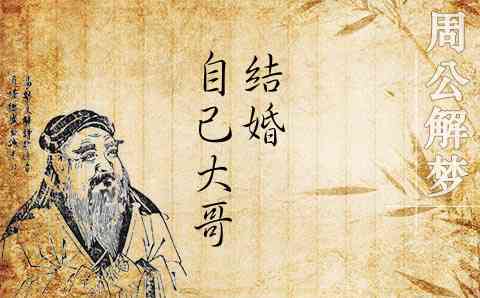 周公解梦
结婚
自己大哥